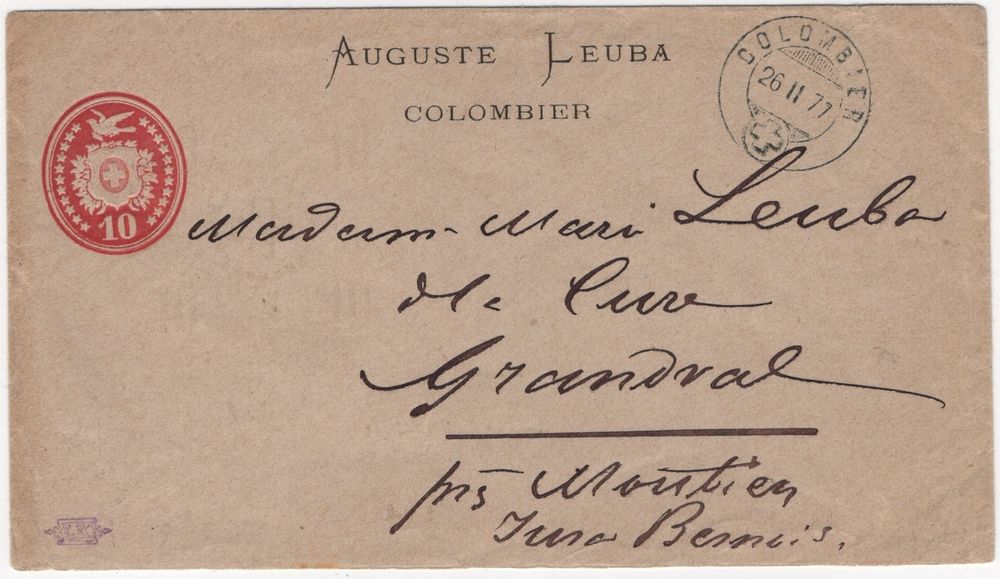 AUGUSTE LEUBA
COLOMBIER
COLOMBIER
26 II 77
10
Madam. Mari Leuba
dla Cure
Grandval
près Moutier
Jura Bernois.